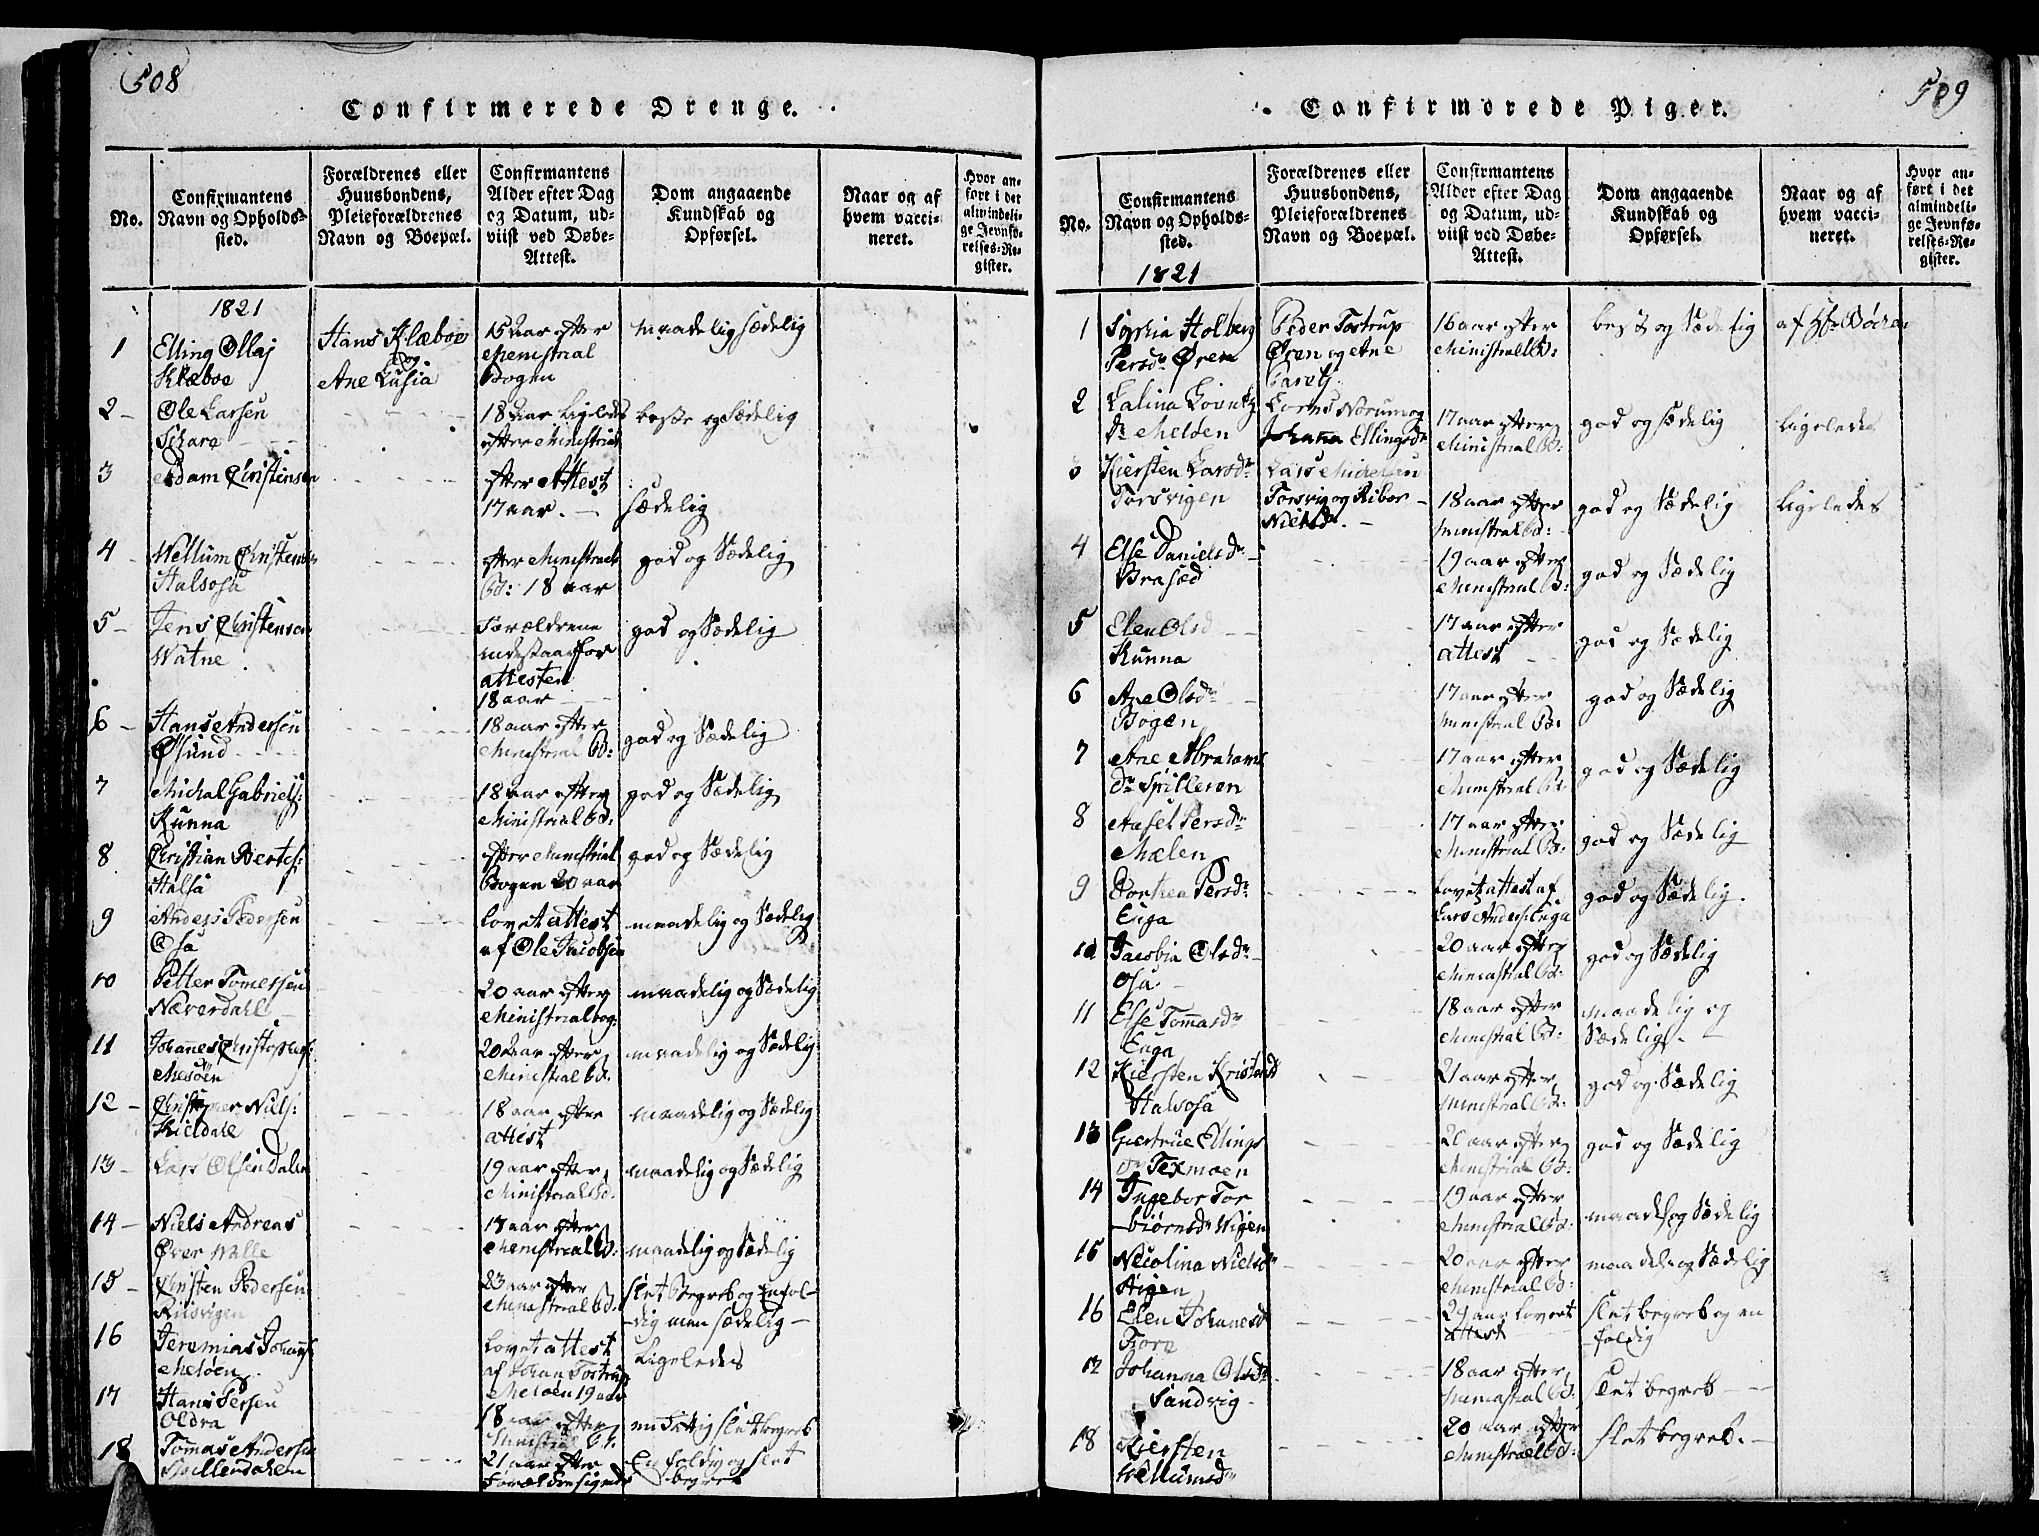 508
Confirmerede Drenge.
No.
Confirmantens Navn og Opholdssted.
Forældrenes eller Huusbondens, Pleieforældrenes Navn og Boepæl.
Confirmantens Alder efter Dag og Datum, udviist ved Døbe-Attest.
Dom angaaende Kundskab og Opførsel.
Naar og af hvem vaccineret.
Hvor anført i det almindelige Jevnførelses-Register.
1821
1 Elling Ollaj Klæboe
Hans Klæboe og Ane Lusia
15 Aar efter Menistrial Bogen
maadelig sædelig
2 - Ole Larsen
18 Aar Ligeledes efter Ministrial
beste og Sædelig
3 Adam Christensen
efter Attest 17 aar. -
sædelig
4 - Wellum Christens Halsosa
efter Menistrial B: 18 aar
god og Sædelig
5 - Jens Christensen Watne
Forældrene indestaar for attesten 18 aar
god og Sædelig
6 - Hans Andersen Øsund
18 aar efter Menistrial B:
god og Sædelig
7 Michal Gabriels: Kunna
18 aar efter Ministrial B:
god og Sædelig
8 Christian Bertes: Halsa
efter Menistrial Bogen 20 aar
god og Sædelig
9 Anders Pedersen Osa
lovet attest af Ole Jacobsen
maadelig og Sædelig
10 Petter Tomessen Næverdahl
20 aar efter Ministrialbog:
maadelig og Sædelig
11 Johannes Christophers: Mesøen
20 Aar efter Menistrial B:
maadelig og Sædelig
12 - Christopher Niels: Kieldahl
18 aar efter attest
maadelig og Sædelig
13 - Lars Olsen Dalen
19 aar efter Ministrial B:
maadelig og Sædelig
14 - Niels Andreas Øver Walle
17 aar efter Menistrial B:
maadelig og Sædelig
15 - Christen Pedersen
23 aar efter Menistrial B:
slet Begreb og Enfoldig men sædelig -
16 Jeremias Johans Meløen
Lovet attest af Johan Tostrup Meløen 19 aar
Ligeledes
17 Hans Persen Oldra
18 aar efter Ministrial B:
slet begreb
18 Tomas Andersen Spellendalen
21 aar efter
Enfoldig og slet begreb
509
Confirmerede Piger.
No.
Confirmantens Navn og Opholdssted.
Forældrenes eller Huusbondens, Pleieforældrenes Navn og Boepæl.
Confirmantens Alder efter Dag og Datum, udviist ved Døbe-Attest.
Dom angaaende Kundskab og Opførsel.
Naar og af hvem vaccineret.
Hvor anført i det almindelige Jevnførelses-Register.
1821
1 Sophia Holberg Persdr Øren
Peder Tostrup Øren og Ane
16 aar efter Ministrial B:
best og Sædelig
2 Dr Meløen
Johanna Ellingsdr
17 aar efter Ministrial B:
god og sædelig
Ligeledes
3 Kiersten Larsdr Torsvigen
Torsvig og Niels
18 aar efter Ministral B:
god og Sædelig
Ligeledes
4 Else Danielsdr Bræsæd
19 aar efter Menistrial B:
god og Sædelig
5 Elen Olsd Kunna
17 aar efter attest
god og Sædelig
6 Ane Olsdr Bogen
17 aar efter Menistrial B:
god og Sædelig
7 Ane Abrahams Dr Spilleren
17 aar efter Menistrial B:
god og Sædelig
8 Axsel Persdr Mælen
17 aar efter Menistrial B:
god og Sædelig
9 Dorthea Persdr Enga
Lovet attest af Lars Anders: Enga
god og Sædelig.
10 Jacobia Olsdr Osa.
20 aar efter Menistrial B:
god og Sædelig
11 Else Tomasdr Enga
18 aar efter Menistrial B:
maadelig og Sædelig. -
12 Kiersten Kristensd Halsosa
21 aar efter Menistrial B:
god og Sædelig
13 Giertrue Ellings dr Texmoen
21 aar efter Menistrial B:
god og Sædelig
14 Ingebor Tor-biørnsdr Wigen
19 aar efter Menistrial B:
maadel og Sædelig
15 Necolina Nielsdr
20 aar efter Menistrial B:
maadel og Sædelig
16 Elen Johanesd Forø
29 aar lovet attest
slet begreb og enfoldig
17 Johanna Olsdr Sandvig -
18 aar efter Menistrial B:
slet begreb - -
18 Kiersten Wellumsdr
20 aar efter Menistrial B:
slet begreb. -